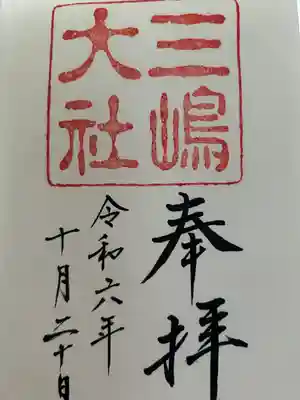 三嶋
大社
奉拝
令和六年
十月二十日